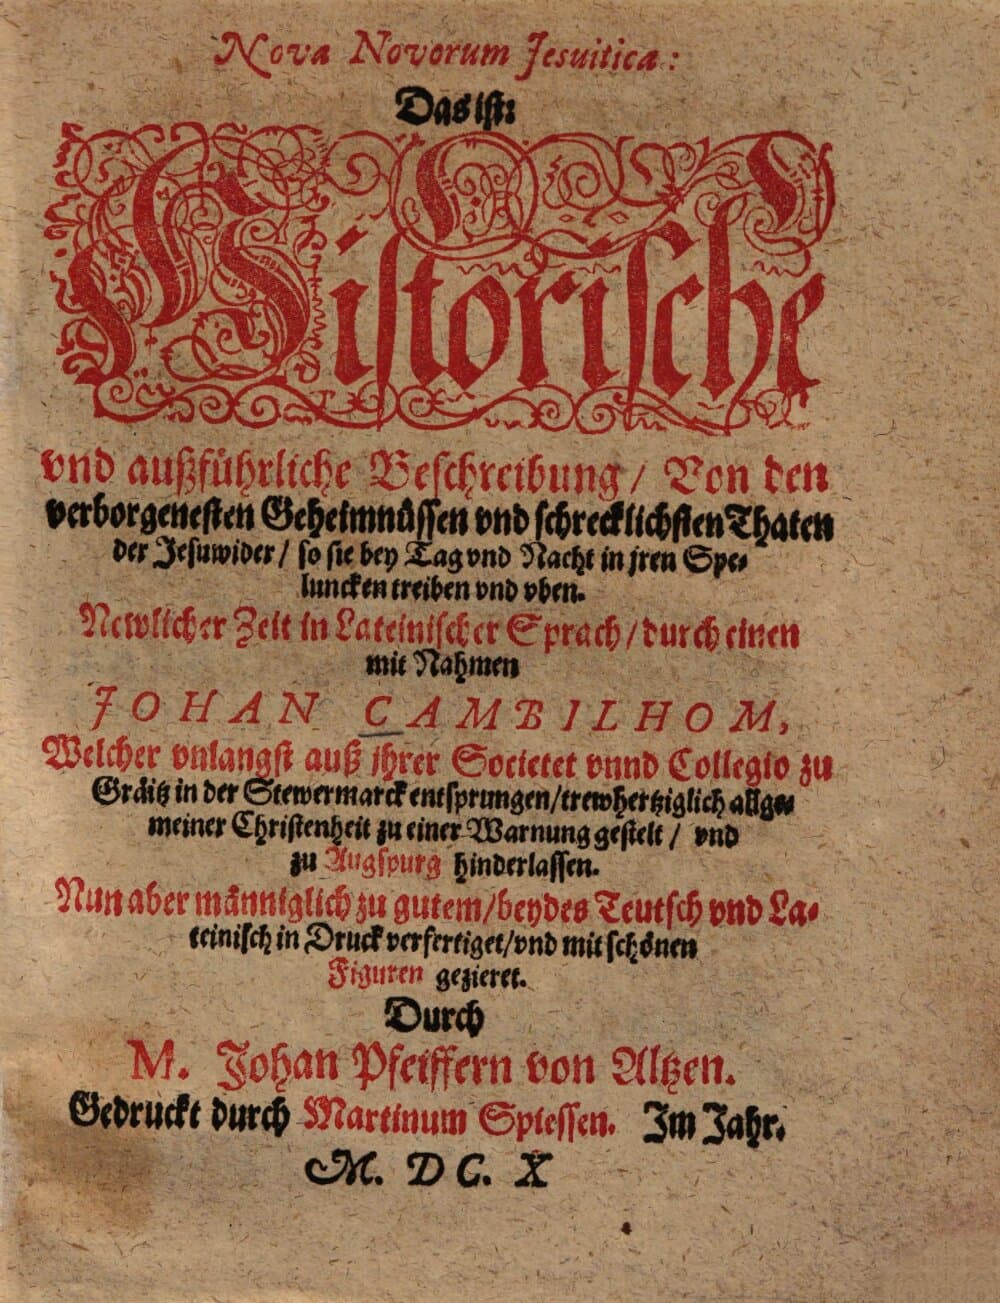 Nova Novorum Jesuitica:
Das ist:
Historische
vnd außführliche Beschreibung / Von den
verborgenesten Geheimnüssen vnd schrecklichsten Thaten
der Jesuwider / so sie bey Tag vnd Nacht in jren Spe-
luncken treiben vnd vben.
Newlicher Zeit in Lateinischer Sprach / durch einen
mit Nahmen
JOHAN CAMBILHOM,
Welcher vnlangst auß jhrer Societet vnnd Collegio zu
Gräitz in der Stewermarck entsprungen / trewhertziglich allge-
meiner Christenheit zu einer Warnung gestelt / vnd
zu Augspurg hinderlassen.
Nun aber männiglich zu gutem / beydes Teutsch vnd La-
teinisch in Druck verfertiget / vnd mit schönen
Figuren gezieret.
Durch
M. Johan Pfeiffern von Altzen.
Gedruckt durch Martinum Spiessen. Im Jahr.
M. DC. X